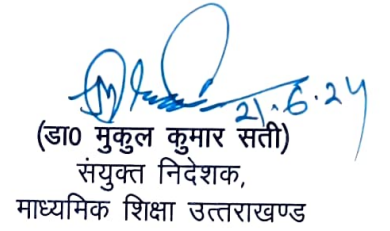 21.6.24
(डा0 मुकुल कुमार सती)
संयुक्त निदेशक,
माध्यमिक शिक्षा उत्तराखण्ड